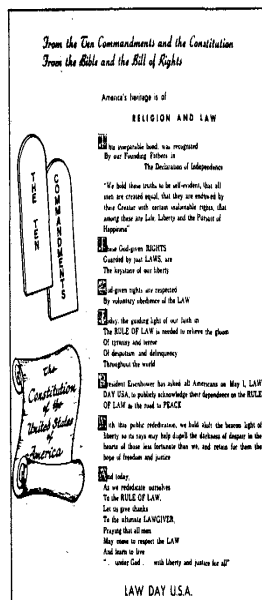 From the Ten Commandments and the Constitution
From the Bible and the Bill of Rights
America's heritage is of
RELIGION AND LAW
This inseparable bond, was recognized
By our Founding Fathers in
The Declaration of Independence
"We hold these truths to be self-evident, that all
men are created equal, that they are endowed by
their Creator with certain inalienable rights, that
among these are Life, Liberty and the Pursuit of
Happiness"
THE TEN
COMMANDMENTS
These God-given RIGHTS
Guarded by just LAWS, are
The keystone of our liberty
God-given rights are respected
By voluntary obedience of the LAW
Today, the guiding light of our faith in
The RULE OF LAW is needed to relieve the gloom
Of tyranny and terror
Of despotism and delinquency
Throughout the world
the
Constitution
of the
United States
of
America
President Eisenhower has asked all Americans on May 1, LAW
DAY USA, to publicly acknowledge their dependence on the RULE
OF LAW as the road to PEACE
With this public rededication, we hold aloft the beacon light of
liberty so its rays may help dispell the darkness of despair in the
hearts of those less fortunate than we, and retain for them the
hope of freedom and justice
And today,
As we rededicate ourselves
To the RULE OF LAW,
Let us give thanks
To the ultimate LAWGIVER,
Praying that all men
May come to respect the LAW
And learn to live
". under God . with liberty and justice for all"
LAW DAY U.S.A.